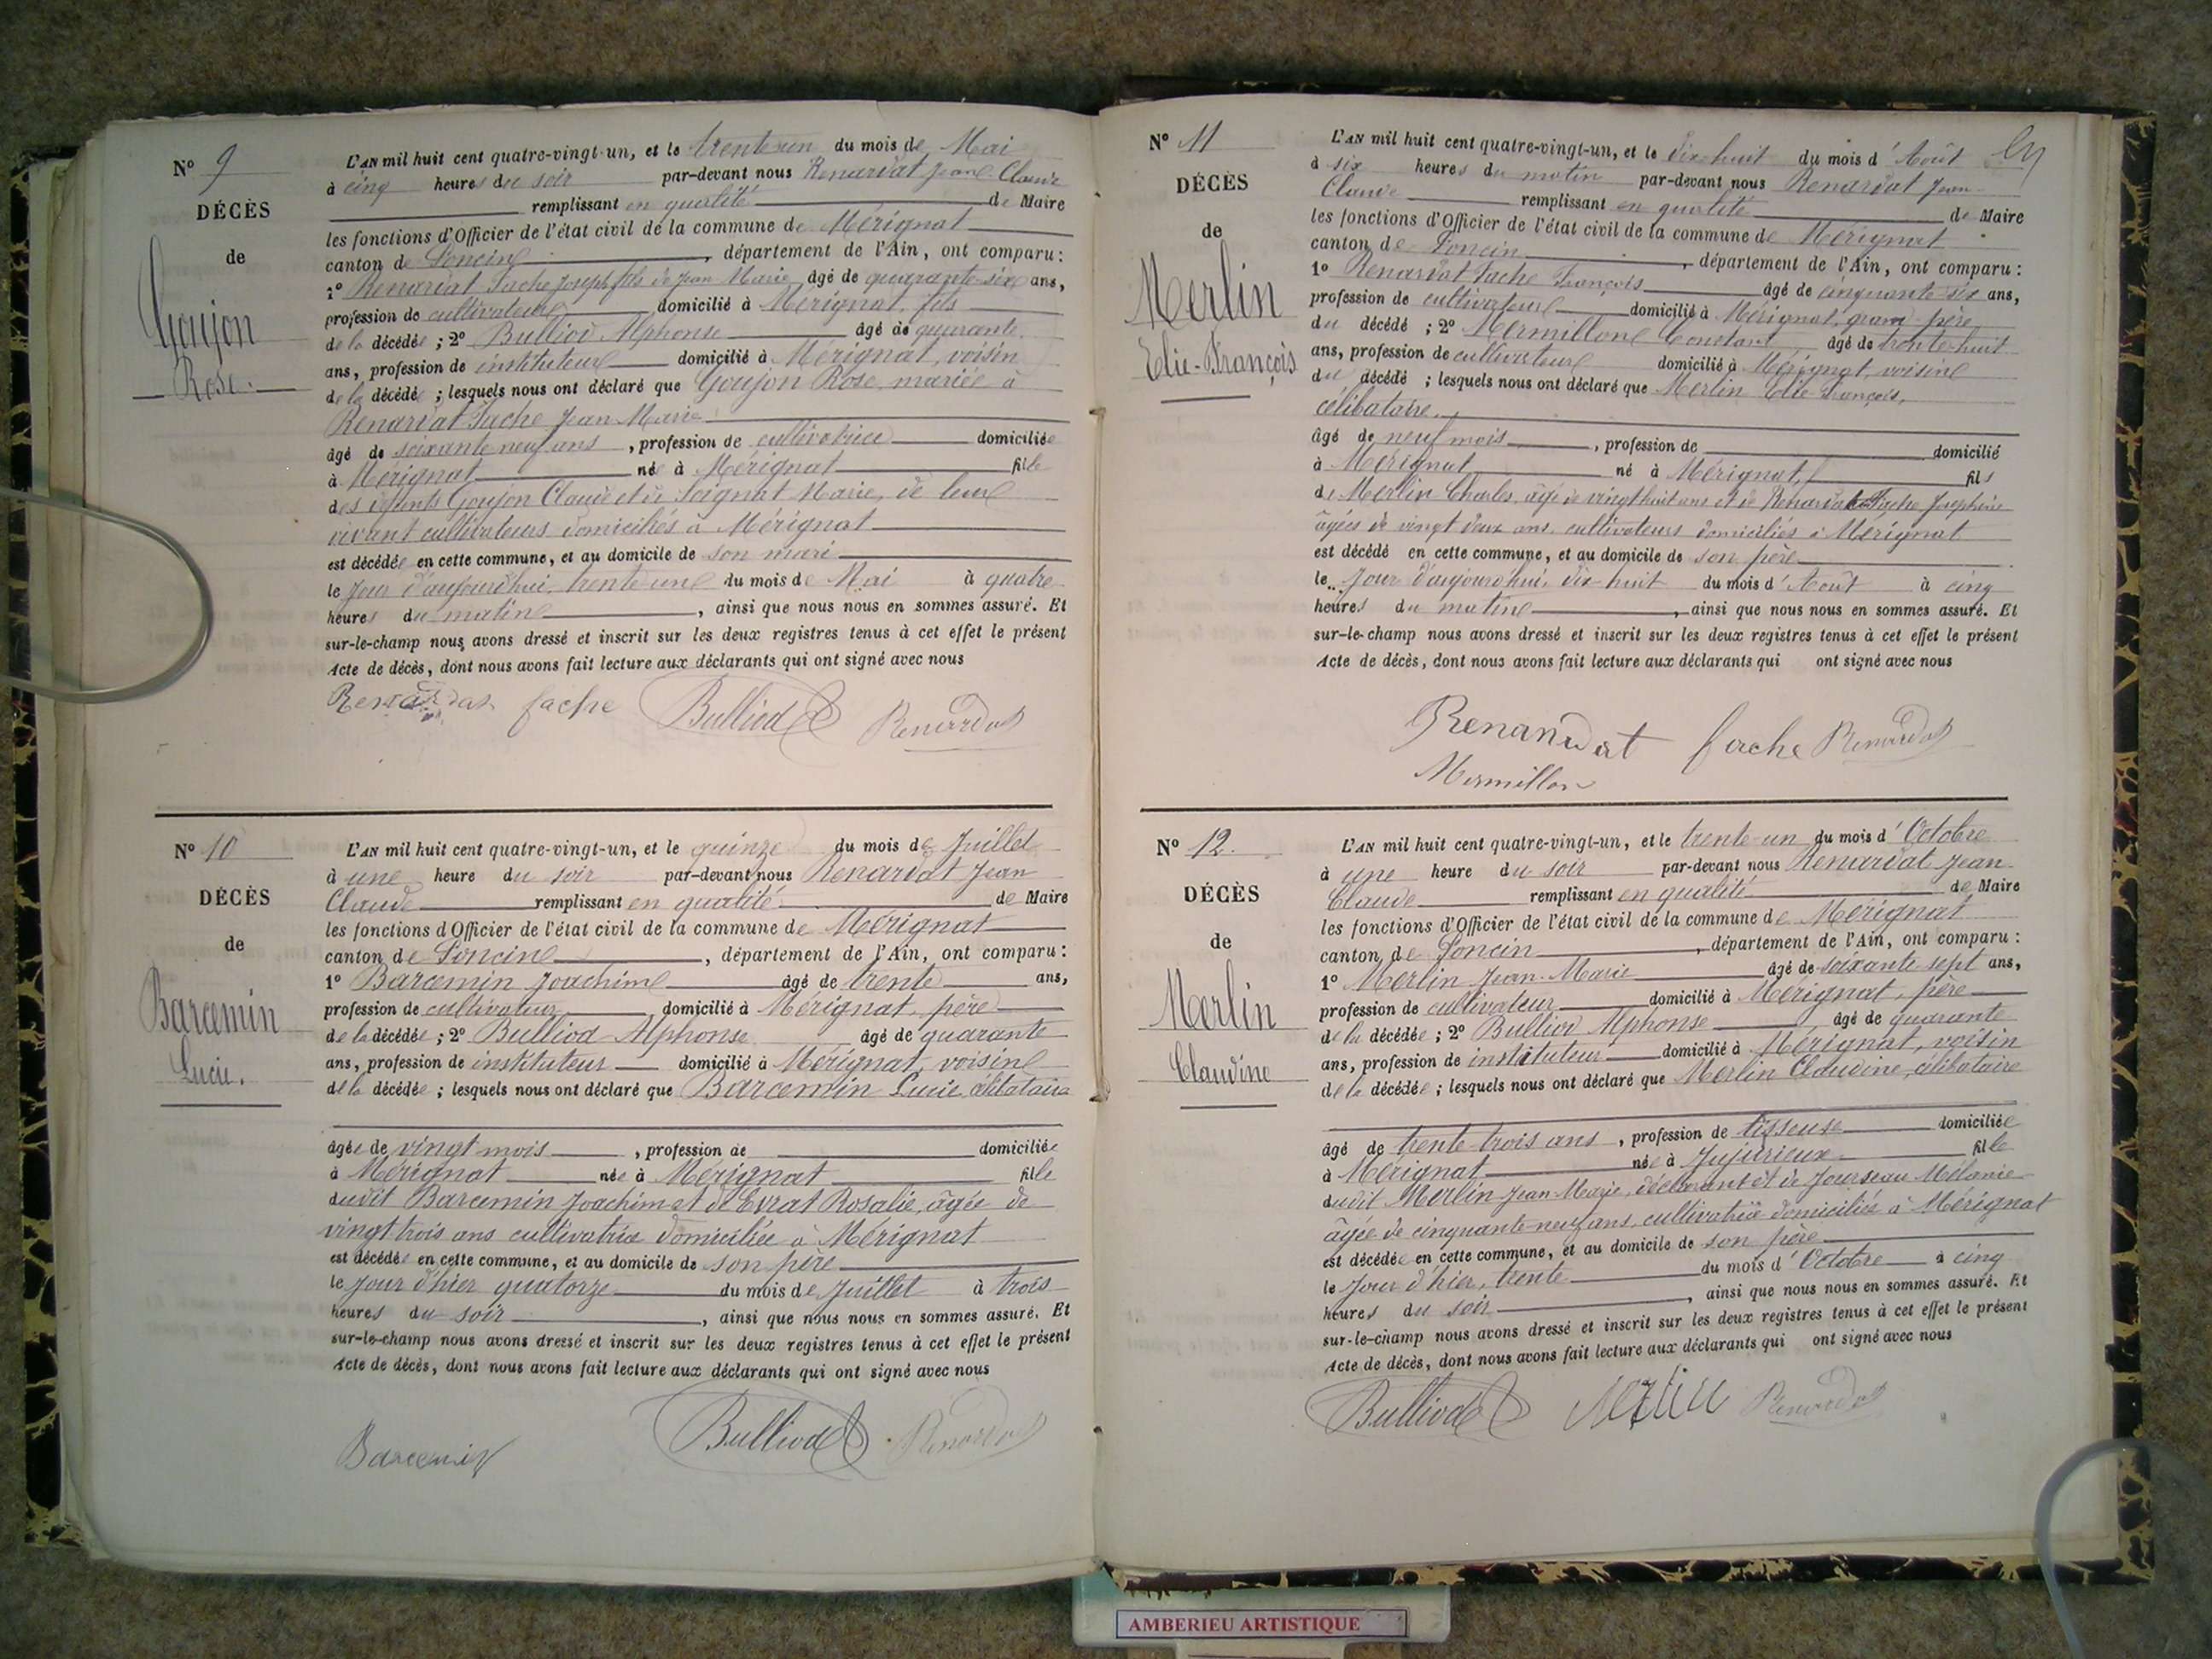 N° 9
DÉCÈS
de
Goujon
Rose.
L'AN mil huit cent quatre-vingt-un, et le trente un du mois de Mai
à cinq heures du soir par-devant nous Renardat Jean Claude
remplissant en qualité de Maire
les fonctions d'Officier de l'état civil de la commune de Mérignat
canton de Poncin, département de l'Ain, ont comparu :
1° Renardat Fache Joseph fils de Jean Marie âgé de quarante-six ans,
profession de cultivateur domicilié à Mérignat, fils
de la décédée ; 2° Bulliod Alphonse âgé de quarante
ans, profession de instituteur domicilié à Mérignat, voisin
de la décédée ; lesquels nous ont déclaré que Goujon Rose, mariée à
Renardat-Fache Jean-Marie
âgé de soixante neuf ans, profession de cultivatrice domiciliée
à Mérignat née à Mérignat fille
des défunts Goujon Claude et de Soignat Marie, de leur
vivant cultivateurs domiciliés à Mérignat
est décédée en cette commune, et au domicile de son mari
le Jour d'aujourd'hui, trente une du mois de Mai à quatre
heures du matin, ainsi que nous nous en sommes assuré. Et
sur-le-champ nous avons dressé et inscrit sur les deux registres tenus à cet effet le présent
Acte de décès, dont nous avons fait lecture aux déclarants qui ont signé avec nous
Renardat fache Bulliod Renardat
N° 10
DÉCÈS
de
Barcemin
Lucie.
L'AN mil huit cent quatre-vingt-un, et le quinze du mois de Juillet
à une heure du soir par-devant nous Renardat Jean
Claude remplissant en qualité de Maire
les fonctions d'Officier de l'état civil de la commune de Mérignat
canton de Poncin, département de l'Ain, ont comparu :
1° Barcemin Joachim âgé de trente ans,
profession de cultivateur domicilié à Mérignat, père
de la décédée ; 2° Bulliod Alphonse âgé de quarante
ans, profession de instituteur domicilié à Mérignat, voisin
de la décédée ; lesquels nous ont déclaré que Barcemin Lucie, célibataire
âgée de vingt mois, profession de domiciliée
à Mérignat née à Mérignat fille
dudit Barcemin Joachim et de Evrat Rosalie, âgée de
vingt trois ans cultivatrice domiciliée à Mérignat
est décédée en cette commune, et au domicile de son père
le Jour d'hier quatorze du mois de Juillet à trois
heures du soir, ainsi que nous nous en sommes assuré. Et
sur-le-champ nous avons dressé et inscrit sur les deux registres tenus à cet effet le présent
Acte de décès, dont nous avons fait lecture aux déclarants qui ont signé avec nous
Barcemin Bulliod Renardat
N° 11
DÉCÈS
de
Merlin
Elie-François
L'AN mil huit cent quatre-vingt-un, et le dix-huit du mois d'Août
à six heures du matin par-devant nous Renardat Jean-
Claude remplissant en qualité de Maire
les fonctions d'Officier de l'état civil de la commune de Mérignat
canton de Poncin, département de l'Ain, ont comparu :
1° Renardat Fache François âgé de cinquante-six ans,
profession de cultivateur domicilié à Mérignat, grand-père
du décédé ; 2° Mermillon Constant âgé de trente-huit
ans, profession de cultivateur domicilié à Mérignat, voisin
du décédé ; lesquels nous ont déclaré que Merlin Elie-François,
célibataire,
âgé de neuf mois, profession de domicilié
à Mérignat né à Mérignat, fils
de Merlin Charles, âgé de vingt huit ans et de Renardat Fache Joséphine
âgées de vingt deux ans, cultivateurs domiciliés à Mérignat
est décédé en cette commune, et au domicile de son père
le Jour d'aujourd'hui, dix-huit du mois d'Août à cinq
heures du matin, ainsi que nous nous en sommes assuré. Et
sur-le-champ nous avons dressé et inscrit sur les deux registres tenus à cet effet le présent
Acte de décès, dont nous avons fait lecture aux déclarants qui ont signé avec nous
Renardat fache Renardat
Mermillon
N° 12.
DÉCÈS
de
Merlin
Claudine
L'AN mil huit cent quatre-vingt-un, et le trente-un du mois d'Octobre
à une heure du soir par-devant nous Renardat Jean
Claude remplissant en qualité de Maire
les fonctions d'Officier de l'état civil de la commune de Mérignat
canton de Poncin, département de l'Ain, ont comparu :
1° Merlin Jean-Marie âgé de soixante sept ans,
profession de cultivateur domicilié à Mérignat, père
de la décédée ; 2° Bulliod Alphonse âgé de quarante
ans, profession de instituteur domicilié à Mérignat, voisin
de la décédée ; lesquels nous ont déclaré que Merlin Claudine, célibataire
âgé de trente-trois ans, profession de tisseuse domiciliée
à Mérignat née à Jujurieux fille
dudit Merlin Jean-Marie, déclarant et de Jourseau Mélanie
âgée de cinquante-neuf ans, cultivatrice domiciliés à Mérignat
est décédée en cette commune, et au domicile de son père
le Jour d'hier, trente du mois d'Octobre à cinq
heures du soir, ainsi que nous nous en sommes assuré. Et
sur-le-champ nous avons dressé et inscrit sur les deux registres tenus à cet effet le présent
Acte de décès, dont nous avons fait lecture aux déclarants qui ont signé avec nous
Bulliod Merlin Renardat
AMBERIEU ARTISTIQUE